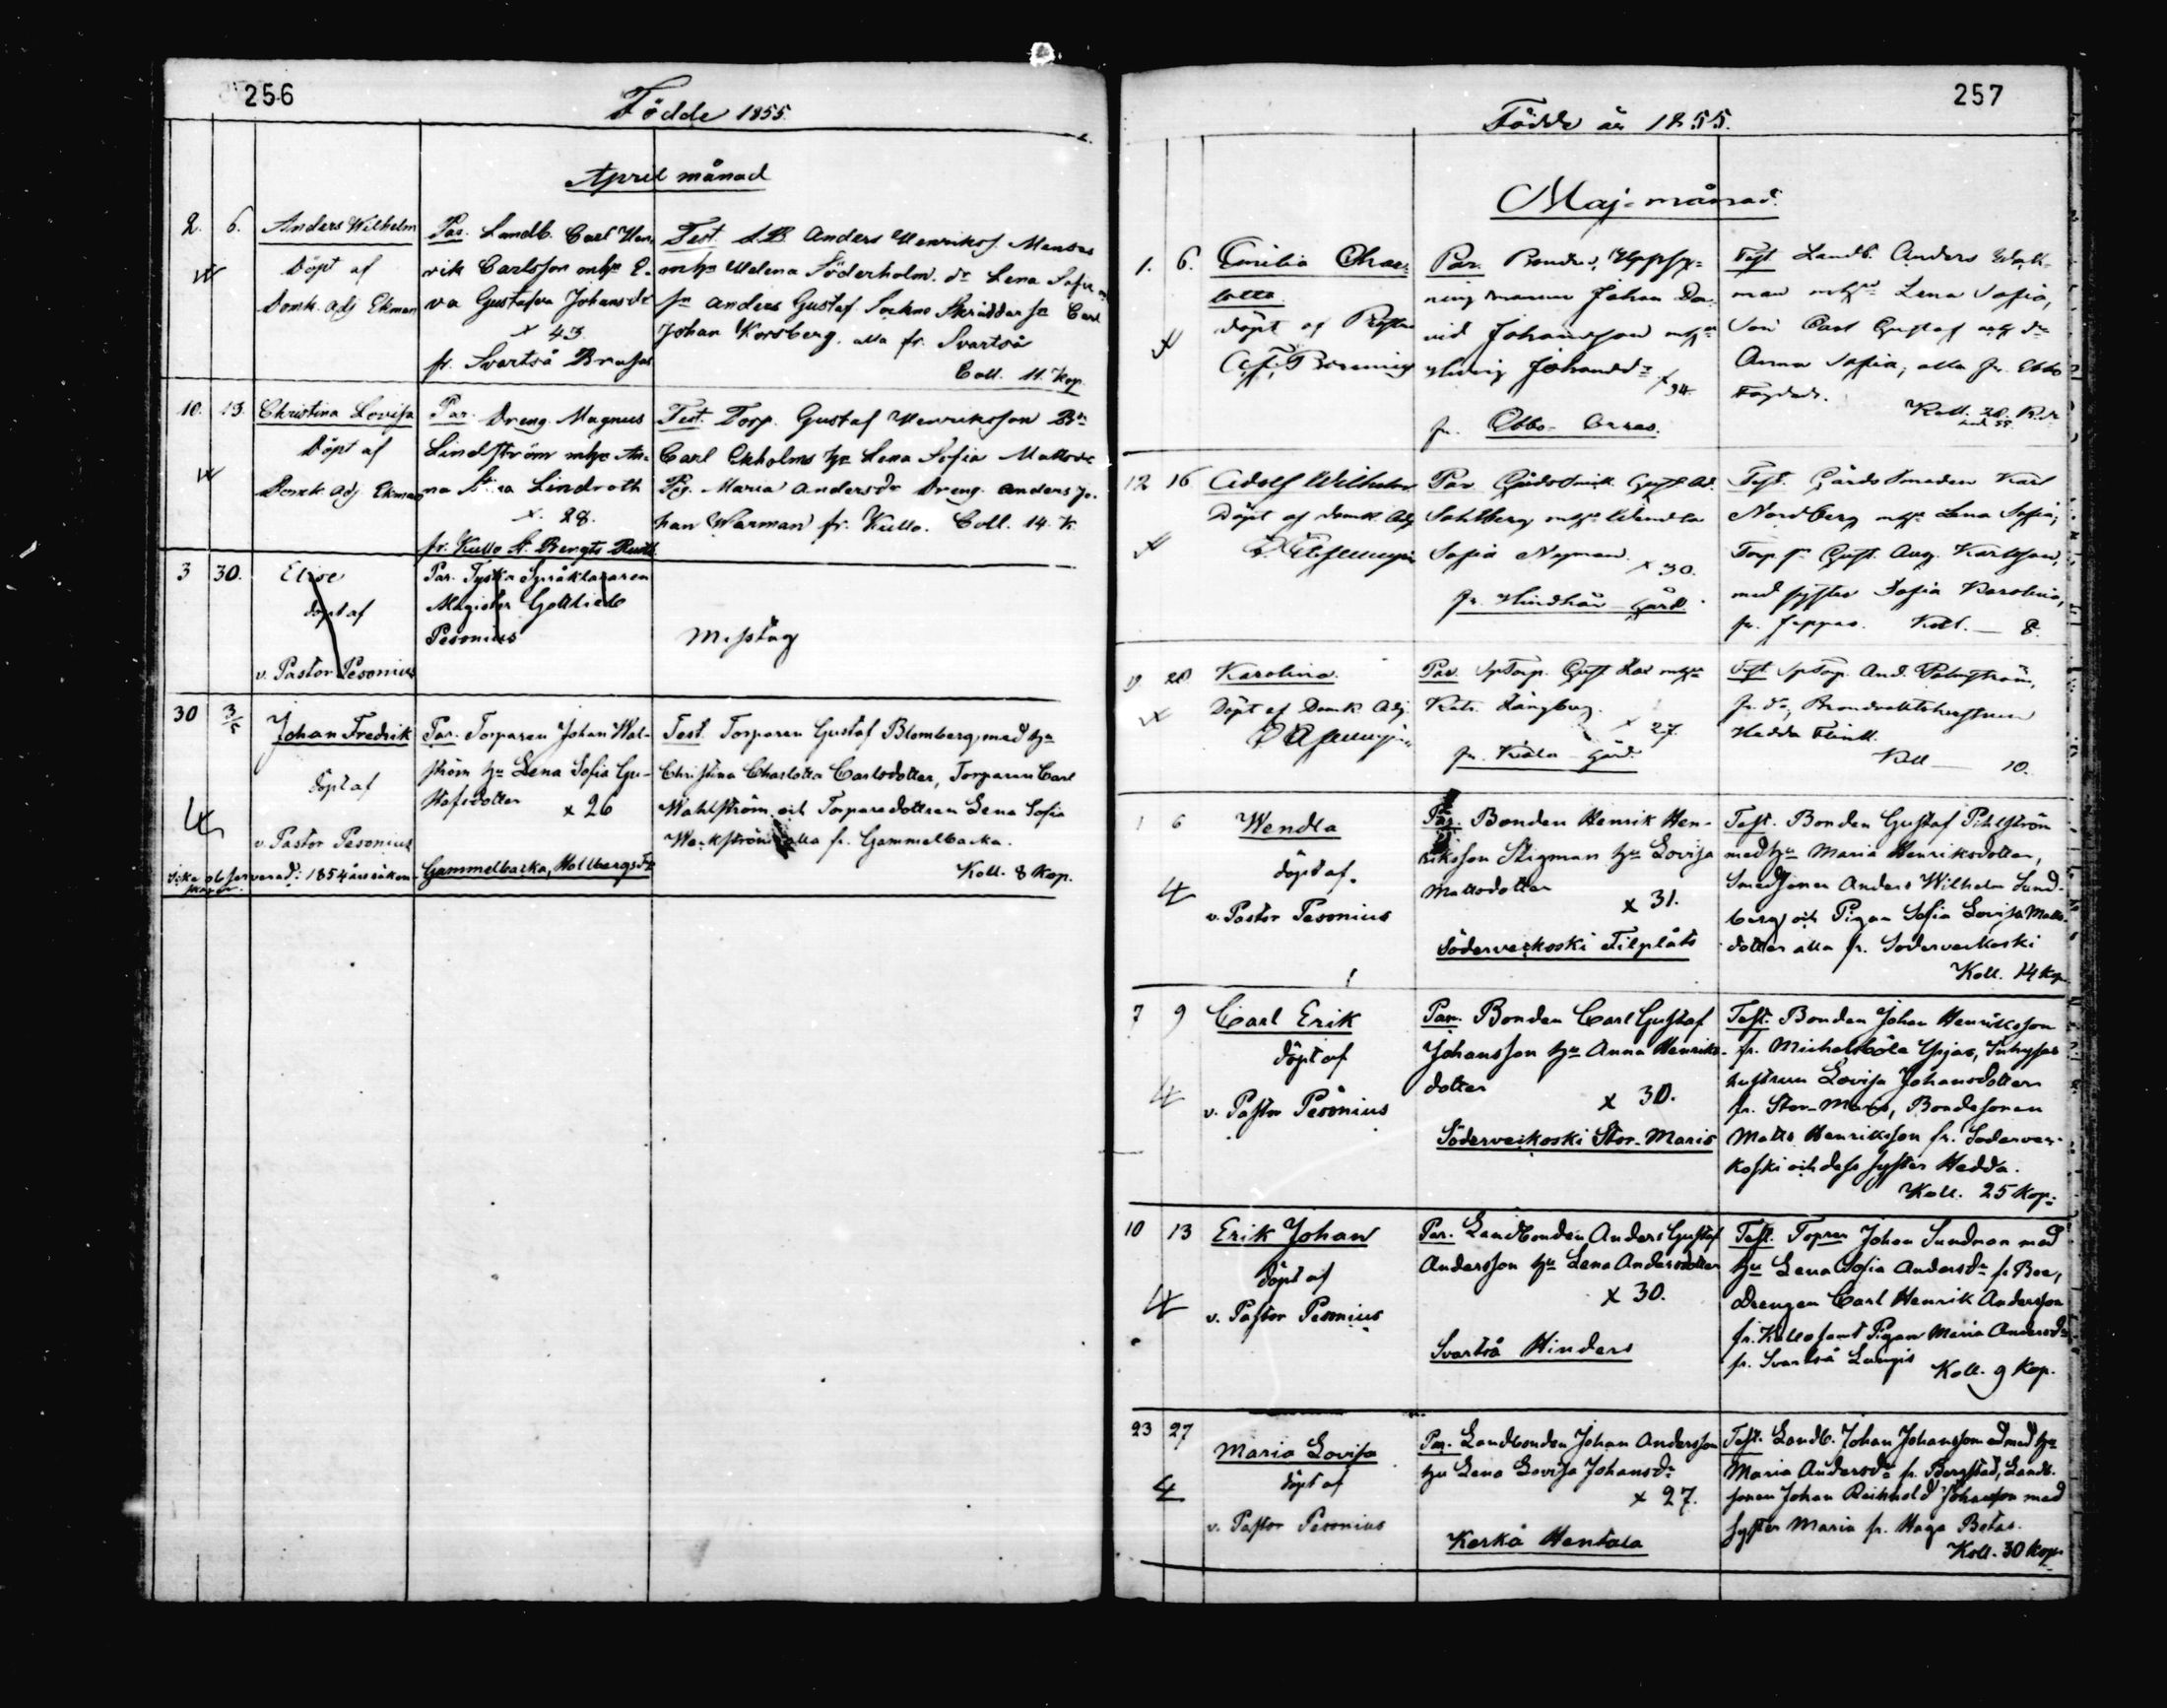 256
Födde 1855.
April månad
2. 6. Anders Wilhelm
Döpt af
Domk. Adj Ekman
Par. Landb. Carl Hen-
rik Carlsson m hu E-
va Gustafva Johansdr
x 43
fr. Svartså
Test. Anders Henrikss.
m hu Helena Söderholm. dr Lena Sofia
sn Anders Gustaf Sockne Skräddar sn Carl
Johan Korsberg. alla fr. Svartså
Coll. 11. Kop.
10. 13. Christina Lovisa
Döpt af
Domk. Adj Ekman
Par. Dreng. Magnus
Lindström m hu An-
na Stina Lindroth
x. 28.
fr. Kullo St. Bengts
Test. Torp. Gustaf Henriksson
Carl Ekholms hu Lena Sofia Mattsdr
Pig. Maria Andersdr Dreng. Anders Jo-
han Warman fr. Kullo. Coll. 14. K.
3 30. Elise
döpt af
v. Pastor Pesonius
Par. Tyska Språkläraren
Magister Gottlieb
Pesonius
Misstag
30 3/5 Johan Fredrik
döpt af
v. Pastor Pesonius
Par. Torparen Johan Wal-
ström hu Lena Sofia Gu-
stafsdotter x 26
Gammelbacka,
Test. Torparen Gustaf Blomberg, med hu
Christina Charlotta Carlsdotter, Torparen Carl
Wahlström och Torparedottren Lena Sofia
Weckström alla fr. Gammelbacka.
Koll. 8 Kop.
257
Födde år 1855.
Maj-månad.
1. 6. Emilia Char-
lotta
döpt af
Par. Bonden,
ningsmannen Johan Da-
vid Johansson m hu
Hedvig Johansdr x 34.
fr. Ebbo
Test Landb. Anders
man m hu Lena Sofia,
Son Carl Gustaf och dr
Anna Sofia, alla fr. Ebbo
Koll. 20.
12 16 Adolf Wilhelm
Döpt af Domk. Adj
Par. Gårdssmed. Gust. Ad.
Sahlberg m hu Wendla
Sofia Nyman x 30.
fr. Hindhår Gård.
Test. Gårds Smeden Karl
Nordberg m hu Lena Sofia,
Torp. Gust. Aug. Karlsson,
med syster Sofia Karolina,
fr. Jeppas. Koll. — 8.
19. 20 Karolina.
Döpt af Domk. Adj.
Par. Gust m hu
Långberg.
x 27.
fr. Kiala Gård.
Test And.
Hedda Flink.
Koll — 10.
1 6 Wendla
döpt af
v. Pastor Pesonius
Par. Bonden Henrik Hen-
riksson Stigman hu Lovisa
Mattsdotter
x 31.
Söderveckoski Filpläts
Test. Bonden Gustaf Pihlström
med hu Maria Henriksdotter,
Smedsonen Anders Wilhelm Sund-
berg och Pigan Sofia Lovisa Matts-
dotter alla fr. Söderveckoski
Koll. 14 Kop
7 9 Carl Erik
döpt af
v. Pastor Pesonius
Par. Bonden Carl Gustaf
Johansson hu Anna Henriks-
dotter
x 30.
Söderveckoski Stor-Maris
Test. Bonden Johan Henriksson
fr. Mickelsböle Ypjas, Inhyses
hustrun Lovisa Johansdotter
fr. Stor-Maris, Bondesonen
Matts Henriksson fr. Södervec-
koski och dess syster Hedda.
Koll. 25 Kop.
10 13 Erik Johan
döpt af
v. Pastor Pesonius
Par. Landbonden Anders Gustaf
Andersson hu Lena Andersdotter
x 30.
Svartså Hinders
Test. Johan Sundman med
hu Lena Sofia Andersdr fr Boe,
Drengen Carl Henrik Andersson
fr. Kullo samt Pigan Maria Andersdr
fr. Svartså Koll. 9 Kop.
23 27
Maria Lovisa
döpt af
v. Pastor Pesonius
Par. Landbonden Johan Andersson
hu Lena Lovisa Johansdr
x 27.
Kerkå Hentala
Test. Landb. Johan Johansson med hu
Maria Andersdr fr. Bergstad, Landb.
sonen Johan Reinhold Johansson med
syster Maria fr. Haga Betas.
Koll. 30 Kop.